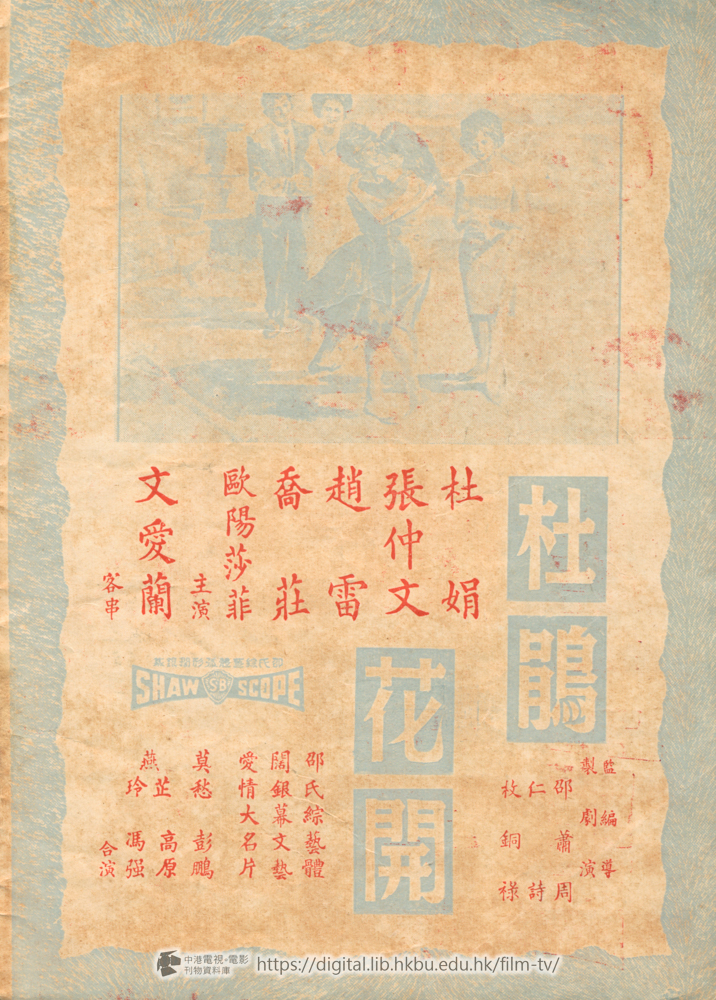 杜鵑
花開
監製 邵仁枚
編劇 蕭銅
導演 周詩祿
杜娟
張仲文
趙雷
喬莊
歐陽莎菲
主演
文愛蘭
客串
SHAW SB SCOPE
邵氏綜藝體
闊銀幕文藝
愛情大名片
莫愁 彭鵬
燕
芷 高原
玲 馮强
合演
中港電視·電影
刊物資料庫
https://digital.lib.hkbu.edu.hk/film-tv/